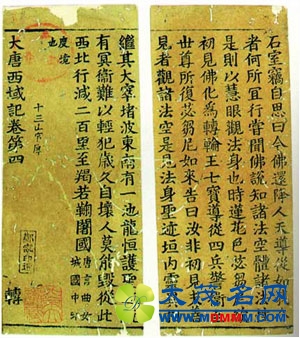 石室竊自思曰今佛還降人天導從如
者何所宜行嘗聞佛說知諸法空體諸法
是則以慧眼觀法身也時蓮花色苾芻
初見佛化為轉輪王七寶導從四兵警
世尊所復苾芻尼如來告曰汝非初見
見者觀諸法空是見法身聖迹垣內靈
繼其大窣堵波東南有一池龍恒護聖
有冥衛難以輕犯歲久自壞人莫能毀從此
西北行減二百里至羯若鞠闍國 唐言曲女城國中印度境
大唐西域記卷第四
十三
轉
大茂名网